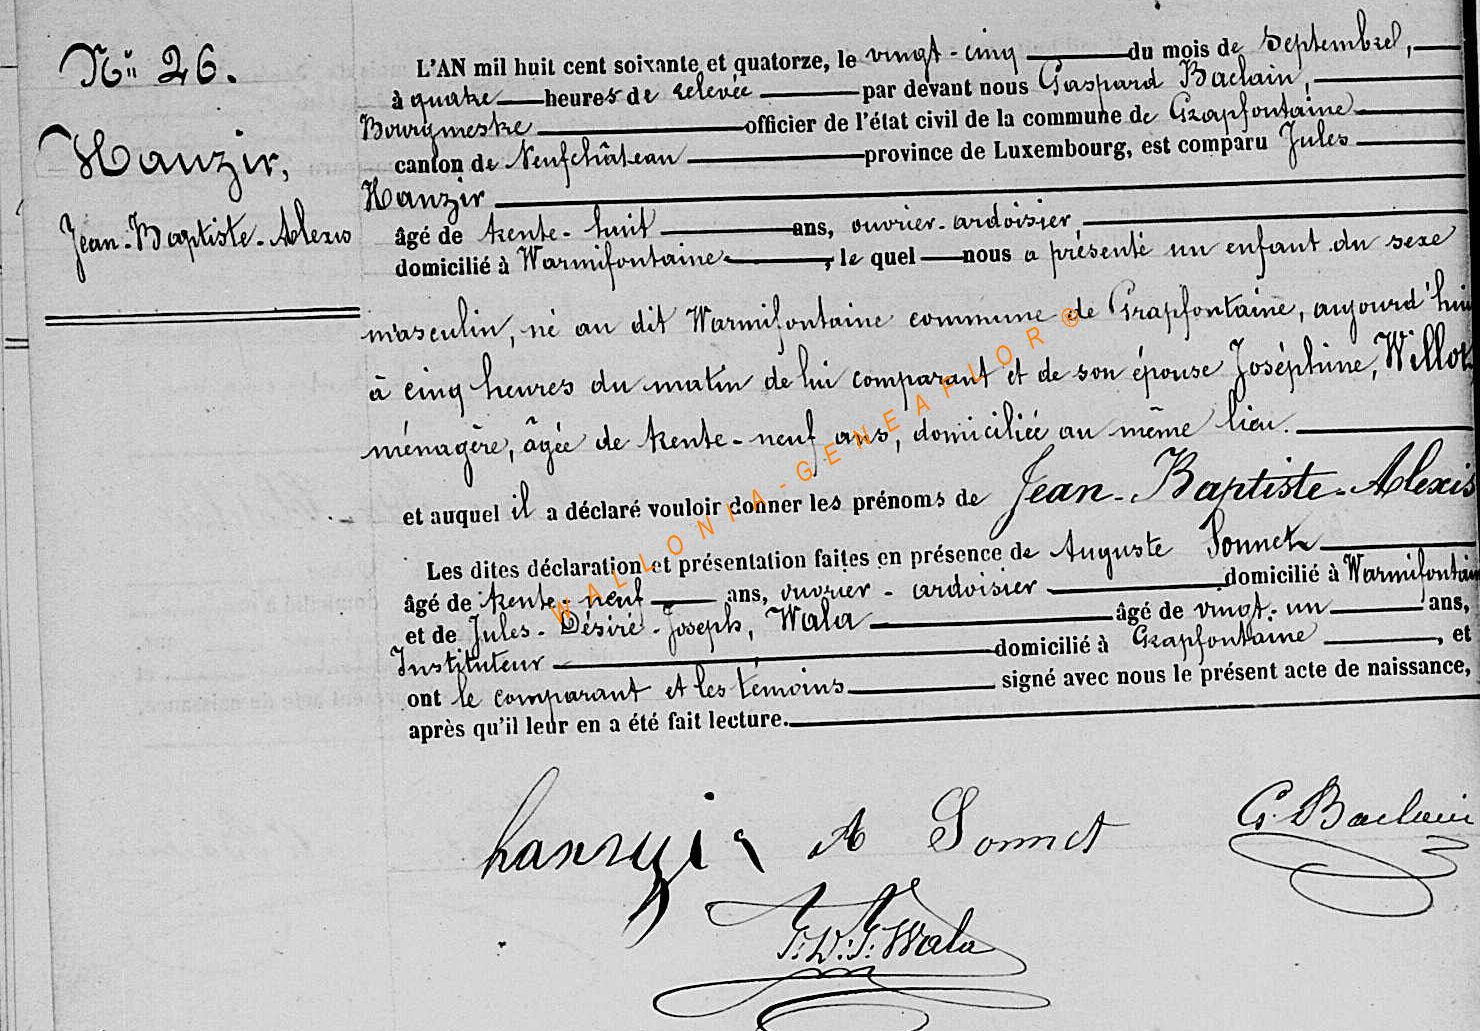 Nº 26.
Hanzir,
Jean-Baptiste-Alexis
L'AN mil huit cent soixante et quatorze, le vingt-cinq du mois de Septembre,
à quatre heures de relevée par devant nous Gaspard Baclain,
Bourgmestre officier de l'état civil de la commune de Grapfontaine
canton de Neufchâteau province de Luxembourg, est comparu Jules
Hanzir
âgé de trente-huit ans, ouvrier-ardoisier,
domicilié à Warmifontaine, le quel nous a présenté un enfant du sexe
masculin, né au dit Warmifontaine commune de Grapfontaine, aujourd'hui
à cinq heures du matin de lui comparant et de son épouse Joséphine, Willot
ménagère, âgée de trente-neuf ans, domiciliée au même lieu.
et auquel il a déclaré vouloir donner les prénoms de Jean-Baptiste-Alexis
Les dites déclaration et présentation faites en présence de Auguste Sonnet
âgé de trente-neuf ans, ouvrier-ardoisier domicilié à Warmifontaine
et de Jules-Désiré-Joseph, Wala âgé de vingt-un ans,
Instituteur domicilié à Grapfontaine, et
ont le comparant et les témoins signé avec nous le présent acte de naissance,
après qu'il leur en a été fait lecture.
hanzir A Sonnet G. Baclain
J. D. J. Wala
WALLONIA-GENEAFLOR ©